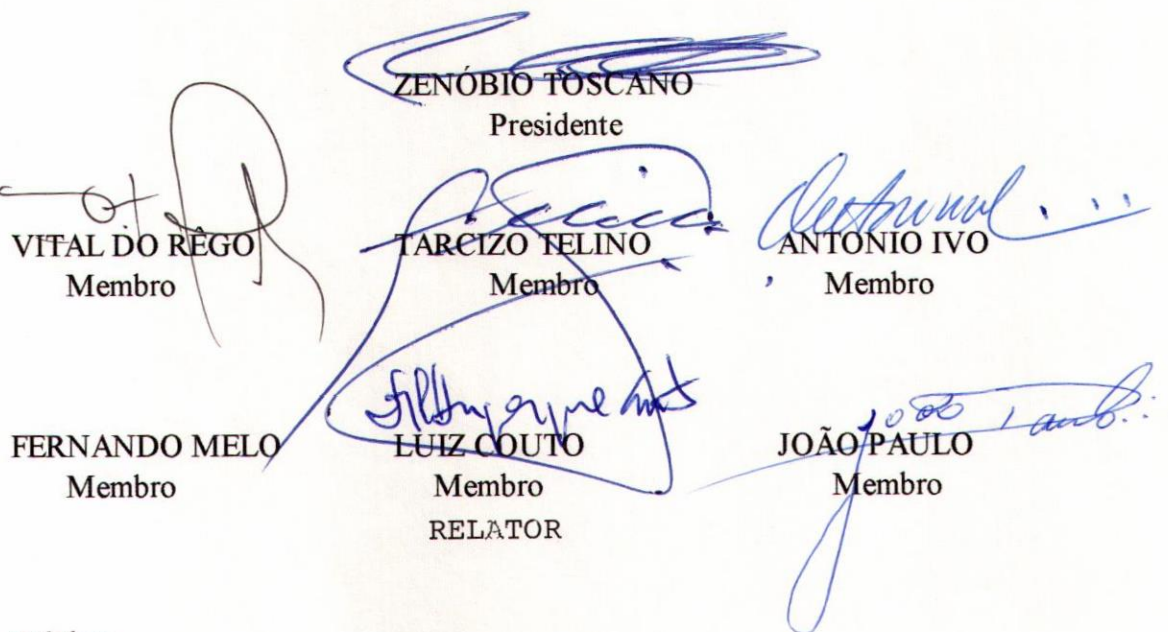 ZENÓBIO TOSCANO
Presidente
VITAL DO RÊGO
Membro
TARCIZO TELINO
Membro
ANTONIO IVO
Membro
FERNANDO MELO
Membro
LUIZ COUTO
Membro
RELATOR
JOÃO PAULO
Membro